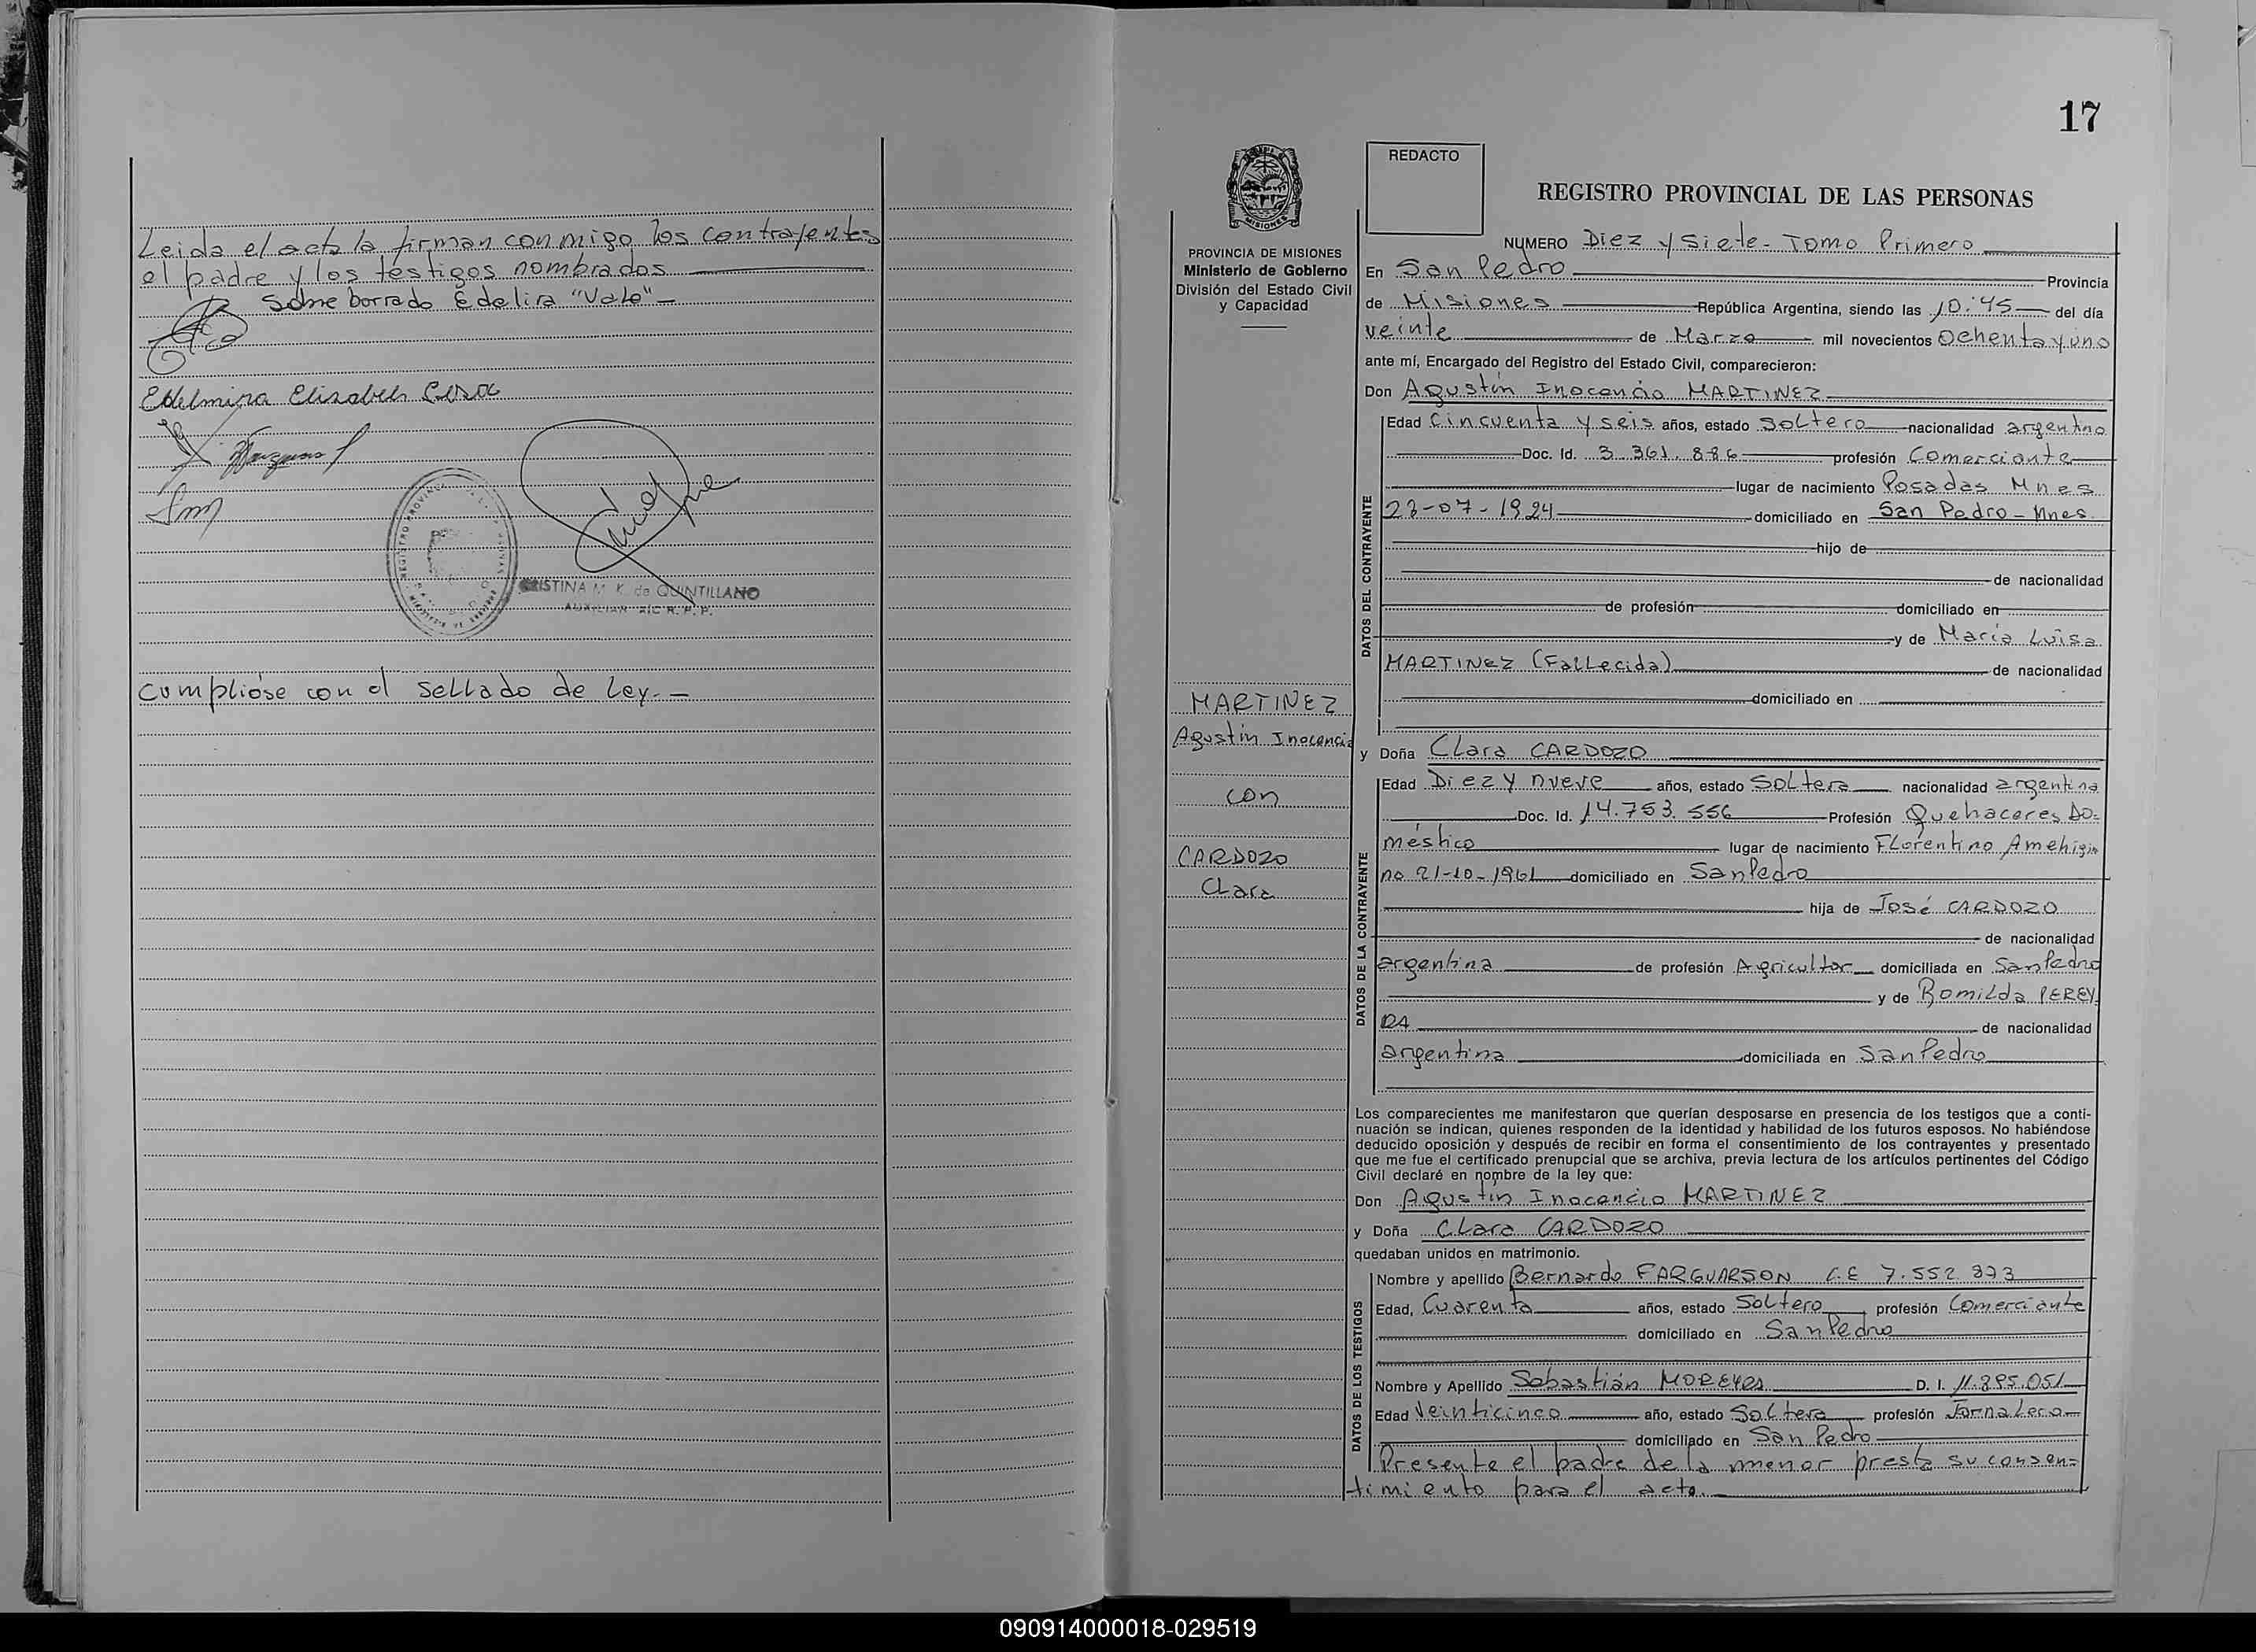 Leida el acta la firman conmigo los contrayentes
el padre y los testigos nombrados
Sobre borrado Edelira "Vale"
Edelmira Elizabeth
CRISTINA M. K. de QUINTILLANO
AUXILIAR
Cumplióse con el sellado de Ley.-
17
REDACTO
REGISTRO PROVINCIAL DE LAS PERSONAS
PROVINCIA DE MISIONES
Ministerio de Gobierno
División del Estado Civil
y Capacidad
NUMERO Diez y siete - Tomo Primero
En San Pedro Provincia
de Misiones República Argentina, siendo las 10:45 del día
veinte de Marzo mil novecientos Ochenta y uno
ante mí, Encargado del Registro del Estado Civil, comparecieron:
Don Agustín Inocencio MARTINEZ
DATOS DEL CONTRAYENTE
Edad Cincuenta y seis años, estado Soltero nacionalidad argentino
Doc. Id. 3.361.886 profesión Comerciante
lugar de nacimiento Posadas Mnes
23-07-1924 domiciliado en San Pedro - Mnes.
hijo de
de nacionalidad
de profesión domiciliado en
y de María Luisa
MARTINEZ (Fallecida) de nacionalidad
domiciliado en
MARTINEZ
Agustín Inocencio
con
CARDOZO
Clara
y Doña Clara CARDOZO
DATOS DE LA CONTRAYENTE
Edad Diez y nueve años, estado Soltera nacionalidad argentina
Doc. Id. 14.753.556 Profesión Quehaceres Do-
méstico lugar de nacimiento Florentino Amehigi
no 21-10-1961 domiciliado en San Pedro
hija de José CARDOZO
de nacionalidad
argentina de profesión Agricultor domiciliada en San Pedro
y de Romilda PEREY
RA de nacionalidad
argentina domiciliada en San Pedro
Los comparecientes me manifestaron que querían desposarse en presencia de los testigos que a conti-
nuación se indican, quienes responden de la identidad y habilidad de los futuros esposos. No habiéndose
deducido oposición y después de recibir en forma el consentimiento de los contrayentes y presentado
que me fue el certificado prenupcial que se archiva, previa lectura de los artículos pertinentes del Código
Civil declaré en nombre de la ley que:
Don Agustín Inocencio MARTINEZ
y Doña Clara CARDOZO
quedaban unidos en matrimonio.
DATOS DE LOS TESTIGOS
Nombre y apellido Bernardo FARGUARSON C.E 7.552.873
Edad, Cuarenta años, estado Soltero profesión Comerciante
domiciliado en San Pedro
Nombre y Apellido Sebastián MOREYRA D. I. 11.895.051
Edad Veinticinco año, estado Soltera profesión Jornalero
domiciliado en San Pedro
Presente el padre de la menor presta su consen-
timiento para el acto.
090914000018-029519